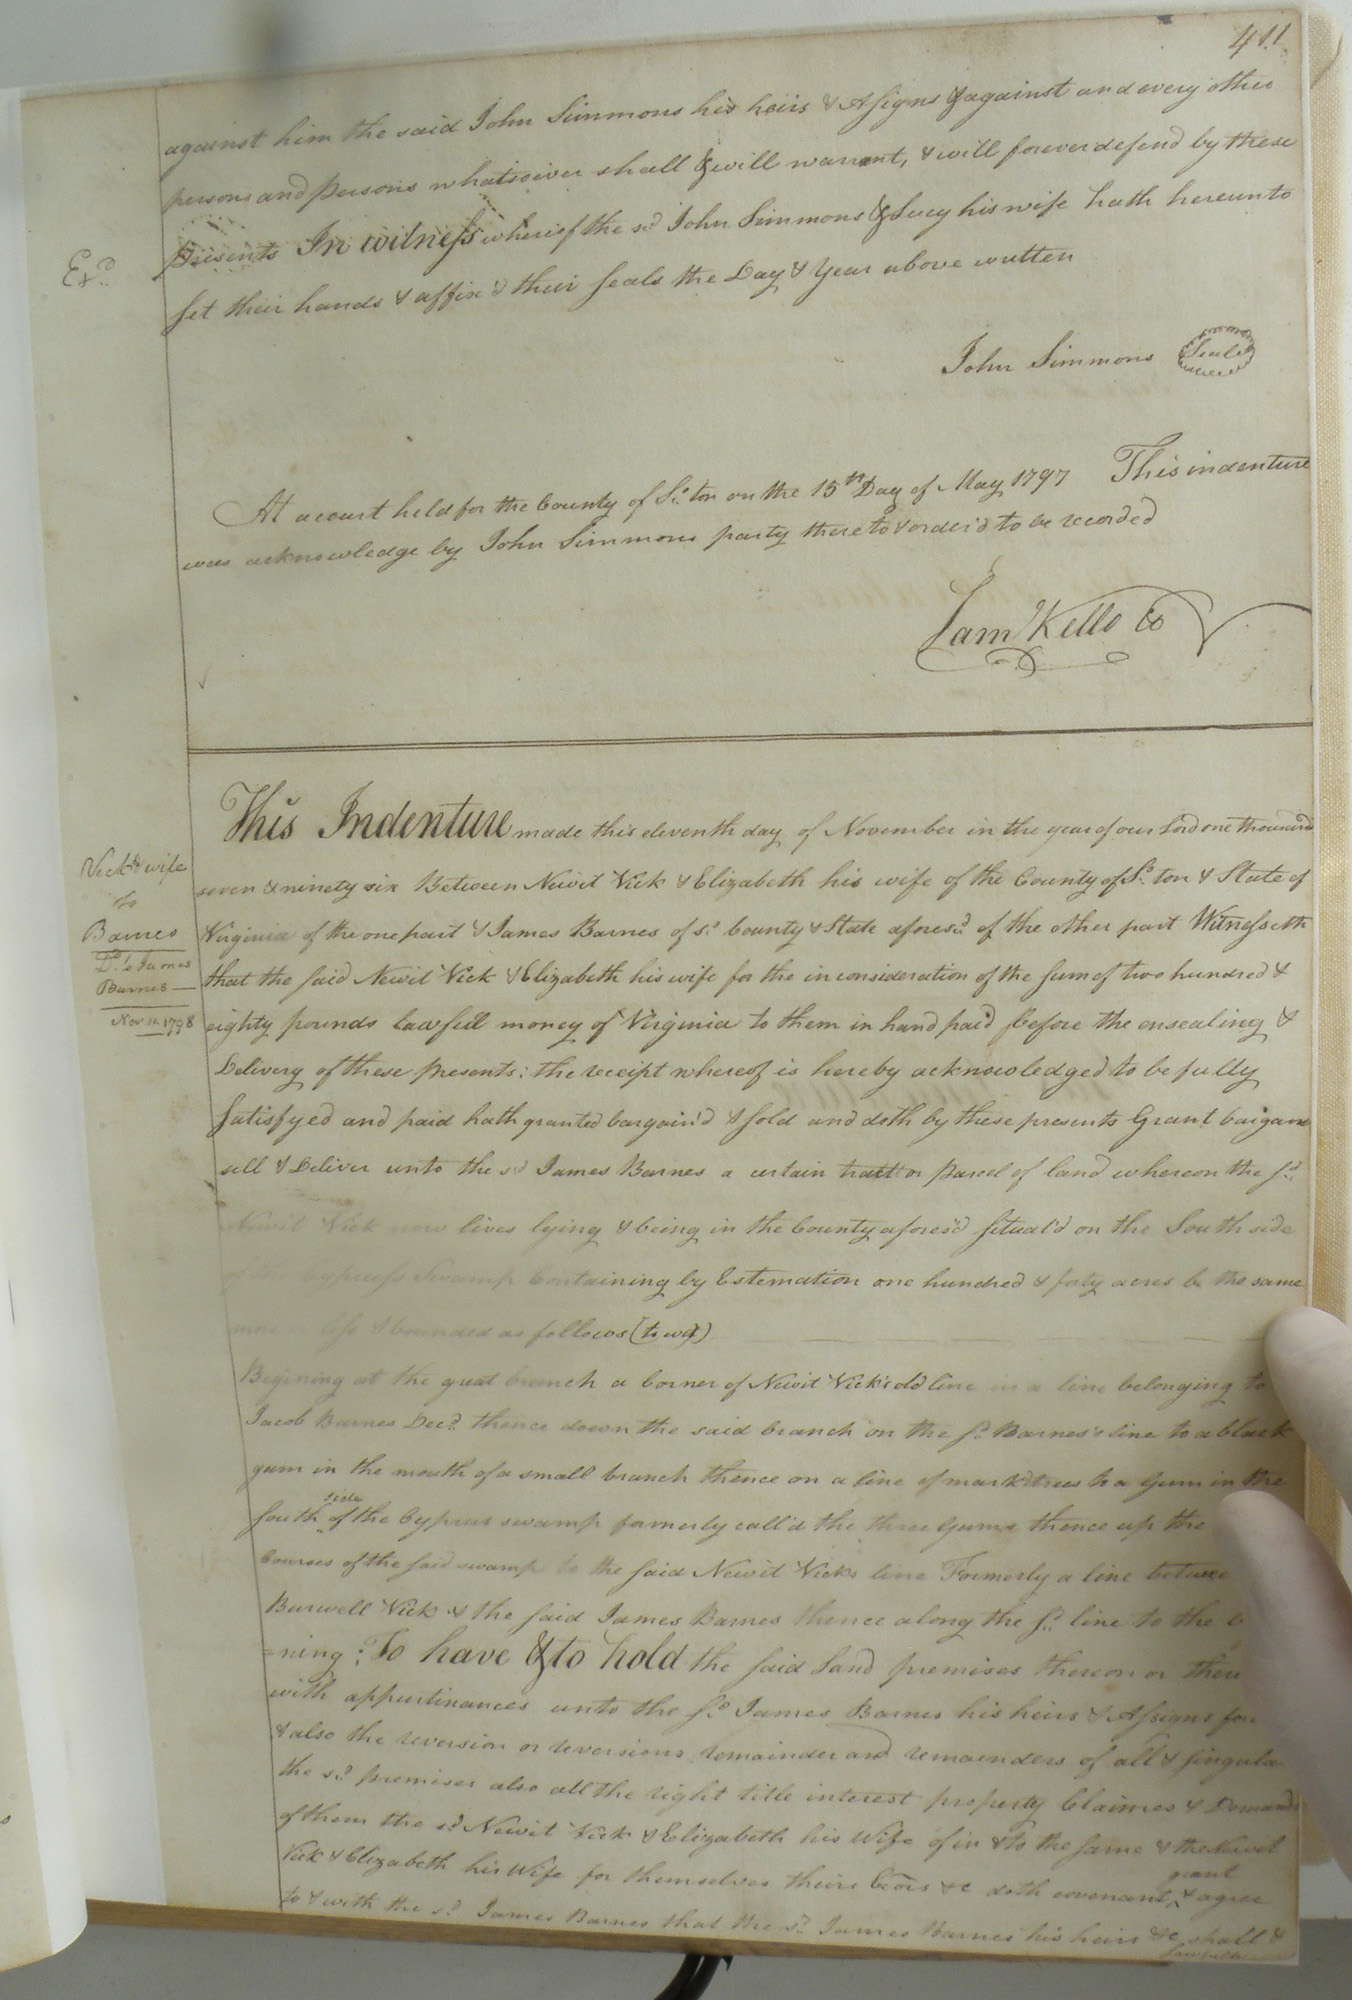 411
against him the said John Simmons his heirs & Assigns & against and every other
persons and persons whatsoever shall & will warrant, & will forever defend by these
presents In witness whereof the sd John Simmons & Lucy his wife hath hereunto
Exd
set their hands & affix'd their seals the Day & Year above written
John Simmons Seal
At a court held for the County of So. ton on the 15th Day of May 1797 This indenture
was acknowledge by John Simmons party thereto & order'd to be recorded
Sam Kello Cc
This Indenture made this eleventh day of November in the year of our Lord one thousand
seven & ninety six Between Newit Vick & Elizabeth his wife of the County of So. ton & State of
Virginia of the one part & James Barnes of sd County & State aforesd of the other part Witnesseth
that the said Newit Vick & Elizabeth his wife for the in consideration of the sum of two hundred &
eighty pounds lawfull money of Virginia to them in hand paid before the ensealing &
Delivery of these presents: the receipt whereof is hereby acknowledged to be fully
satisfyed and paid hath granted bargain'd & sold and doth by these presents Grant bargane
sell & Deliver unto the sd James Barnes a certain tract or parcel of land whereon the sd
Newit Vick now lives lying & being in the County afores'd situat'd on the South side
of the Cypress Swamp Containing by Estemation one hundred & forty acres be the same
more or less & bounded as follows (to wit)
Vick & wife
to
Barnes
Dd to James
Barnes
Nov 11. 1798
Begining at the great branch a Corner of Newit Vick's old line in a line belonging to
Jacob Barnes Decd. thence down the said branch on the sd Barnes's line to a black
gum in the mouth of a small branch thence on a line of mark'd trees to a Gum in the
side
South of the Cypress swamp formerly call'd the three Gums thence up the
Courses of the said swamp to the said Newit Vicks line Formerly a line between
Burwell Vick & the said James Barnes thence along the sd line to the
=ning: To have & to hold the said Land premises thereon or there
with appurtinances unto the sd James Barnes his heirs & Assigns for
& also the reversion or reversions remainder and remainders of all & singular
the sd premises also all the right title interest property Claimes & Demands
of them the sd Newit Vick & Elizabeth his Wife of in & to the same & the Newit
grant
Vick & Elizabeth his Wife for themselves theire heirs &c doth covenant & agree
to & with the sd James Barnes that the sd James Barnes his heirs &c shall &